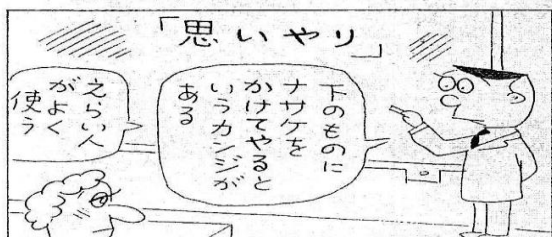 「思いやり」
下のものに
ナサケを
かけてやると
いうカンジが
ある
えらい人
がよく
使う